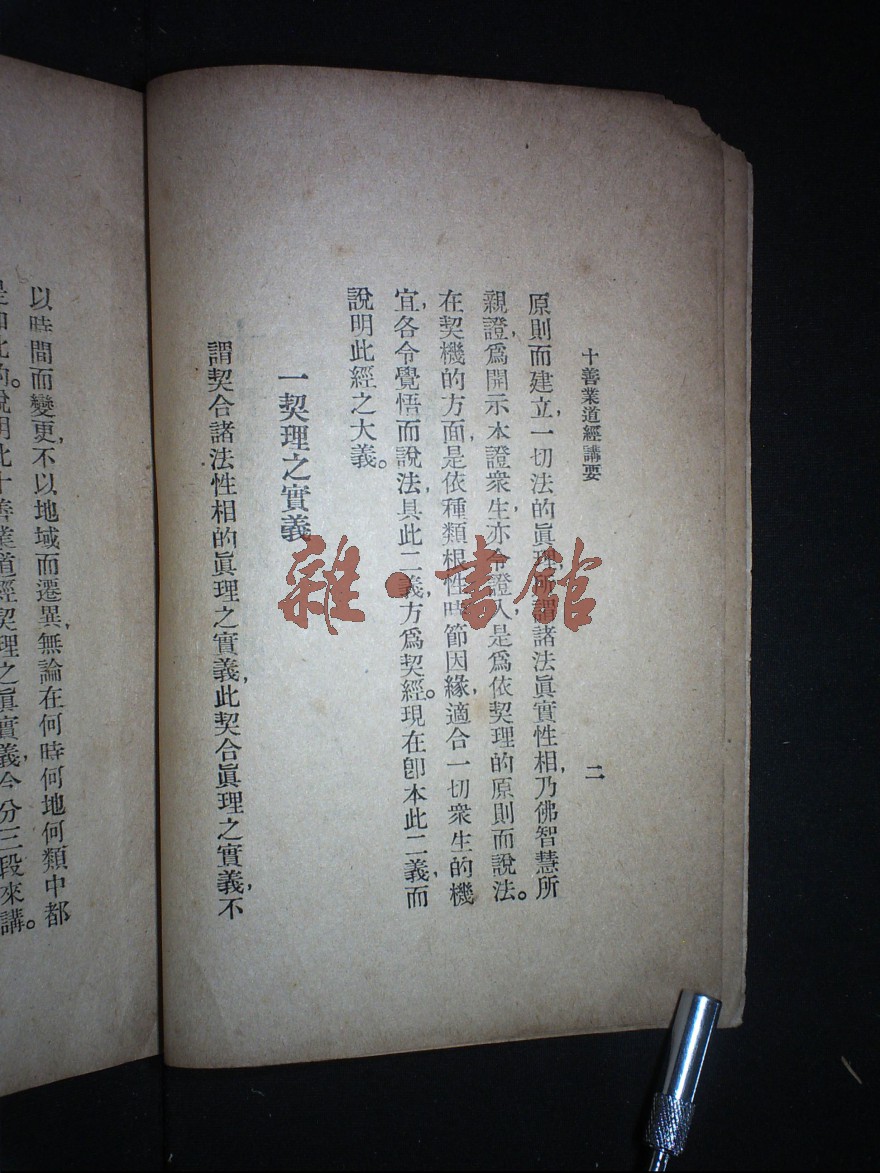 十善業道經講要
二
原則而建立，一切法的眞理所謂諸法眞實性相，乃佛智慧所
親證，爲開示本證衆生，亦令證入是爲依契理的原則而說法。
在契機的方面，是依種類根性時節因緣，適合一切衆生的機
宜，各令覺悟而說法，具此二義，方爲契經。現在卽本此二義，而
說明此經之大義。
一契理之實義
謂契合諸法性相的眞理之實義，此契合眞理之實義，不
以時間而變更，不以地域而遷異，無論在何時何地何類中都
是如此的。說明此十善業道經契理之眞實義，今分三段來講。
雜·書館